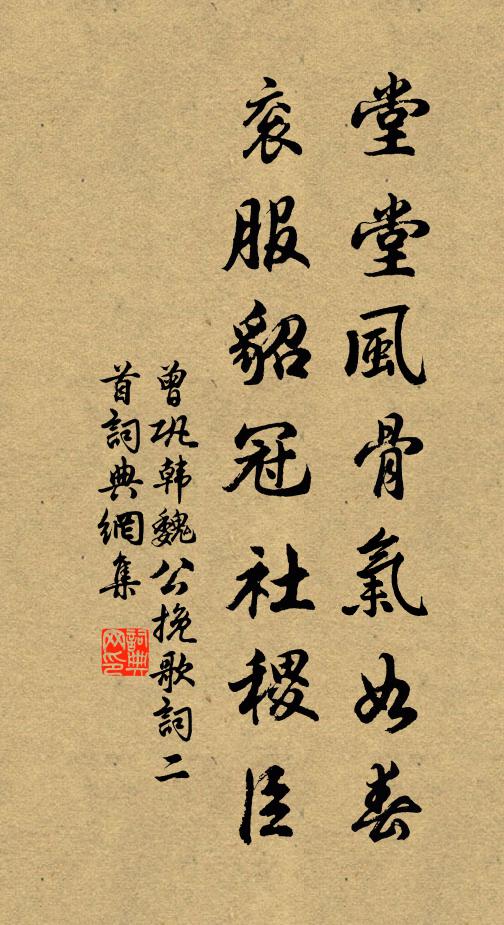 堂堂風骨氣如春
袞服貂冠社稷臣
曾巩韩魏公挽歌詞二
首詞典網集
詞典
网印